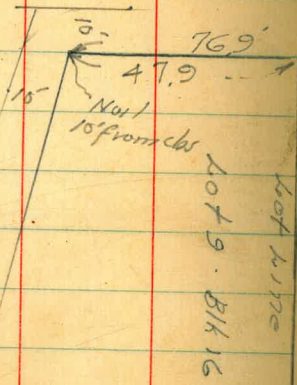 10'
76.9'
47.9
15'
Nail
10' from cbs
Lot 9. Blk 16
Lot Line